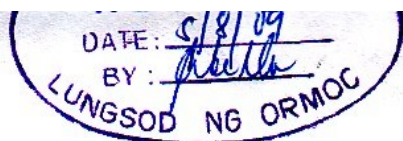 DATE: 5/8/09
BY:
LUNGSOD NG ORMOC